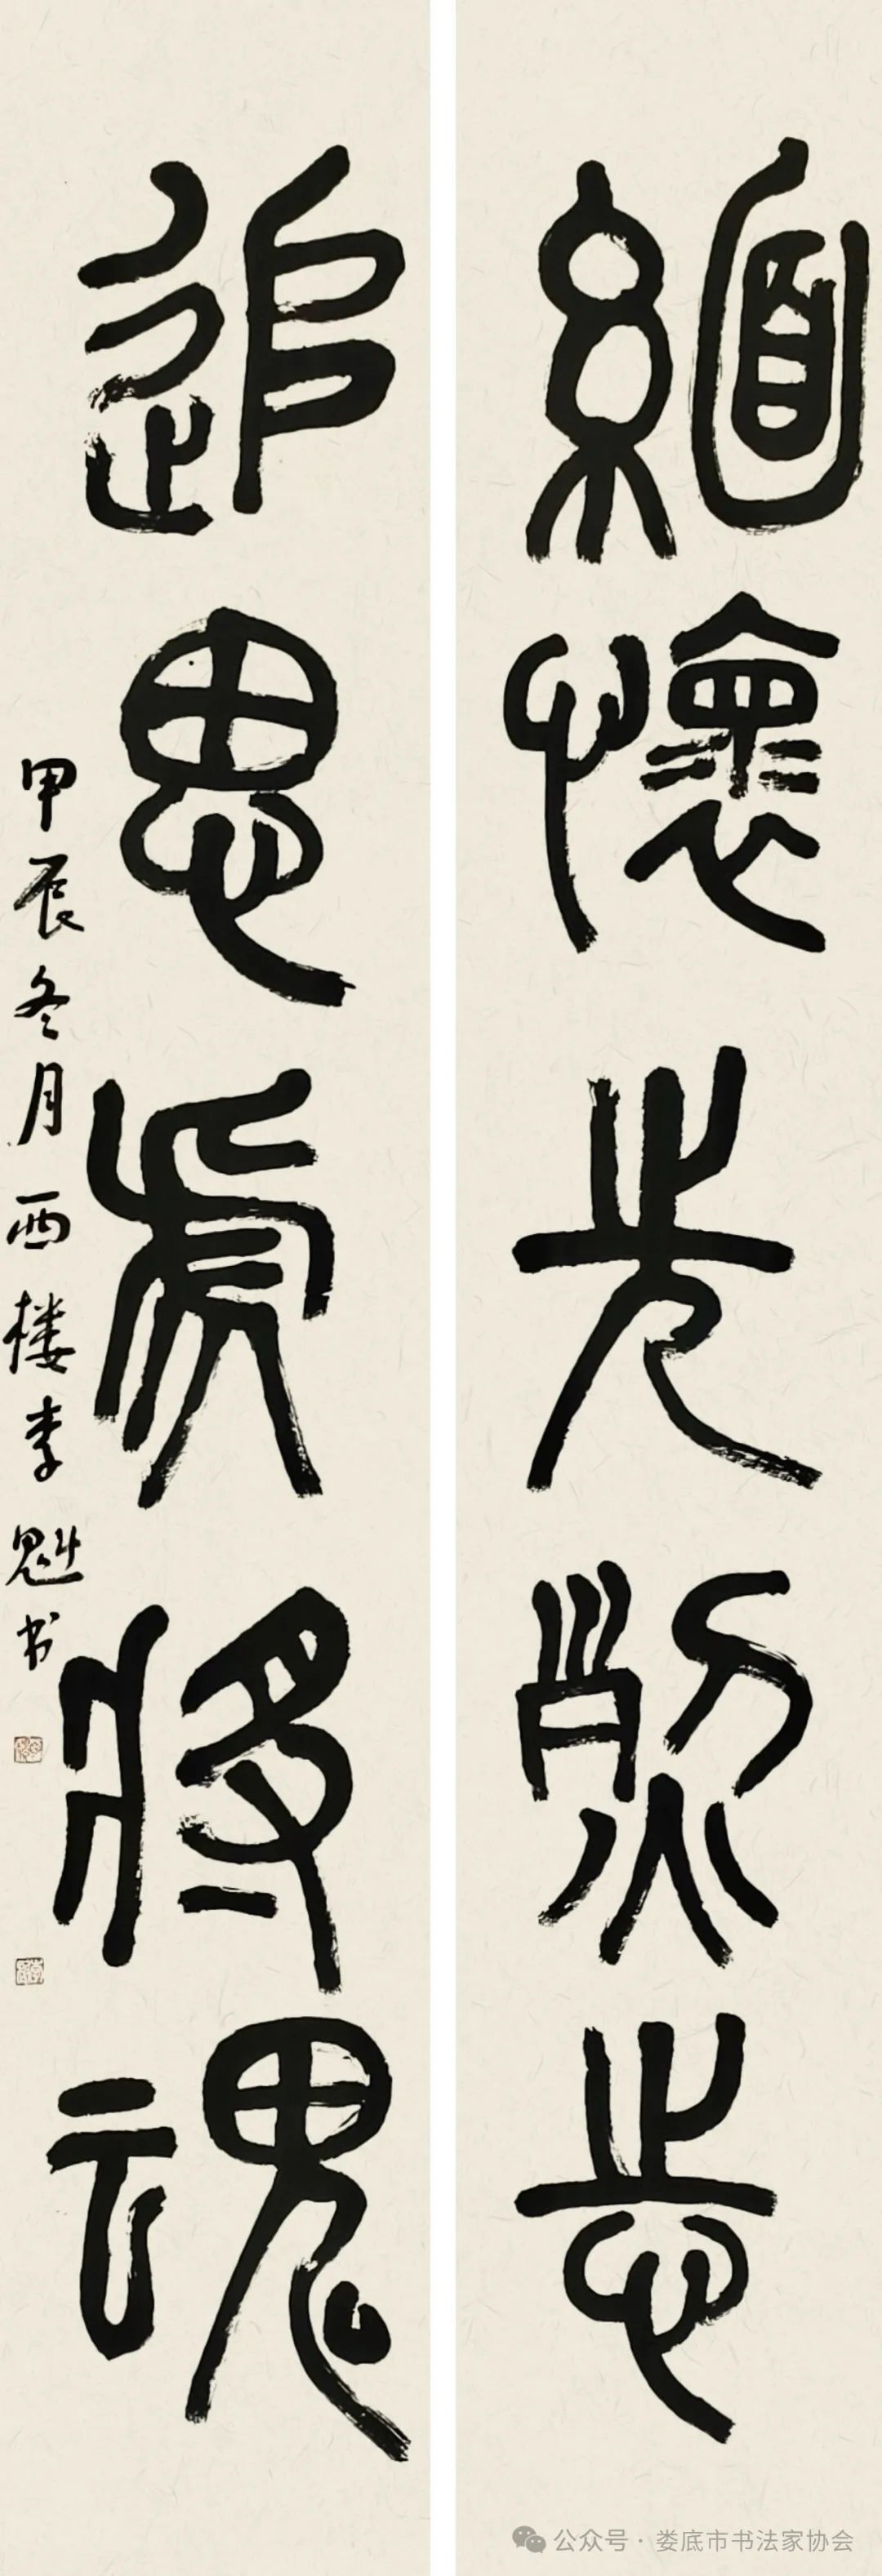 緬懷先烈志
追思虎將魂
甲辰冬月西楼李魁书
公众号·娄底市书法家协会